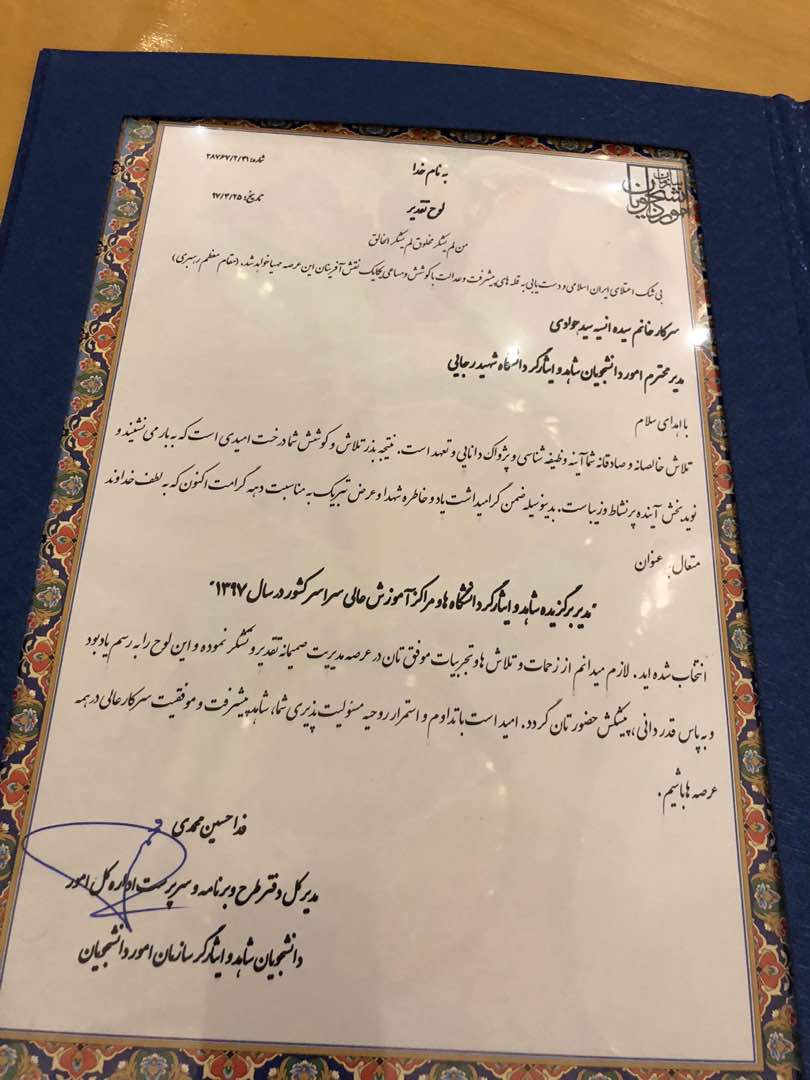 سازمان امور دانشجویان
به نام خدا
شماره: ۲۸۷۶۷/۲/۳۱
لوح تقدیر
تاریخ: ۹۷/۴/۲۵
من لم یشکر مخلوق لم یشکر الخالق
بی شک اعتلای ایران اسلامی و دست یابی به قله های پیشرفت و عدالت با کوشش و مساعی یکایک نقش آفرینان این عرصه مهیا خواهد شد. (مقام معظم رهبری)
سرکار خانم سیده انسیه سید جوادی
مدیر محترم امور دانشجویان شاهد و ایثارگر دانشگاه شهید رجایی
با اهدای سلام
تلاش خالصانه و صادقانه شما آینه وظیفه شناسی و پژواک دانایی و تعهد است. نتیجه بذر تلاش و کوشش شما درخت امیدی است که به بار می نشیند و
نوید بخش آینده پر نشاط و زیباست. بدینوسیله ضمن گرامیداشت یاد و خاطره شهدا و عرض تبریک به مناسبت دهه کرامت اکنون که به لطف خداوند
متعال به عنوان
"مدیر برگزیده شاهد و ایثارگر دانشگاه ها و مراکز آموزش عالی سراسر کشور در سال ۱۳۹۷"
انتخاب شده اید. لازم میدانم از زحمات و تلاش ها و تجربیات موفق تان در عرصه مدیریت صمیمانه تقدیر و تشکر نموده و این لوح را به رسم یادبود
و به پاس قدردانی، پیشکش حضورتان گردد. امید است با تداوم و استمرار روحیه مسئولیت پذیری شما، شاهد پیشرفت و موفقیت سرکار عالی در همه
عرصه ها باشیم.
فدا حسین محمدی
مدیر کل دفتر طرح و برنامه و سرپرست اداره کل امور
دانشجویان شاهد و ایثارگر سازمان امور دانشجویان